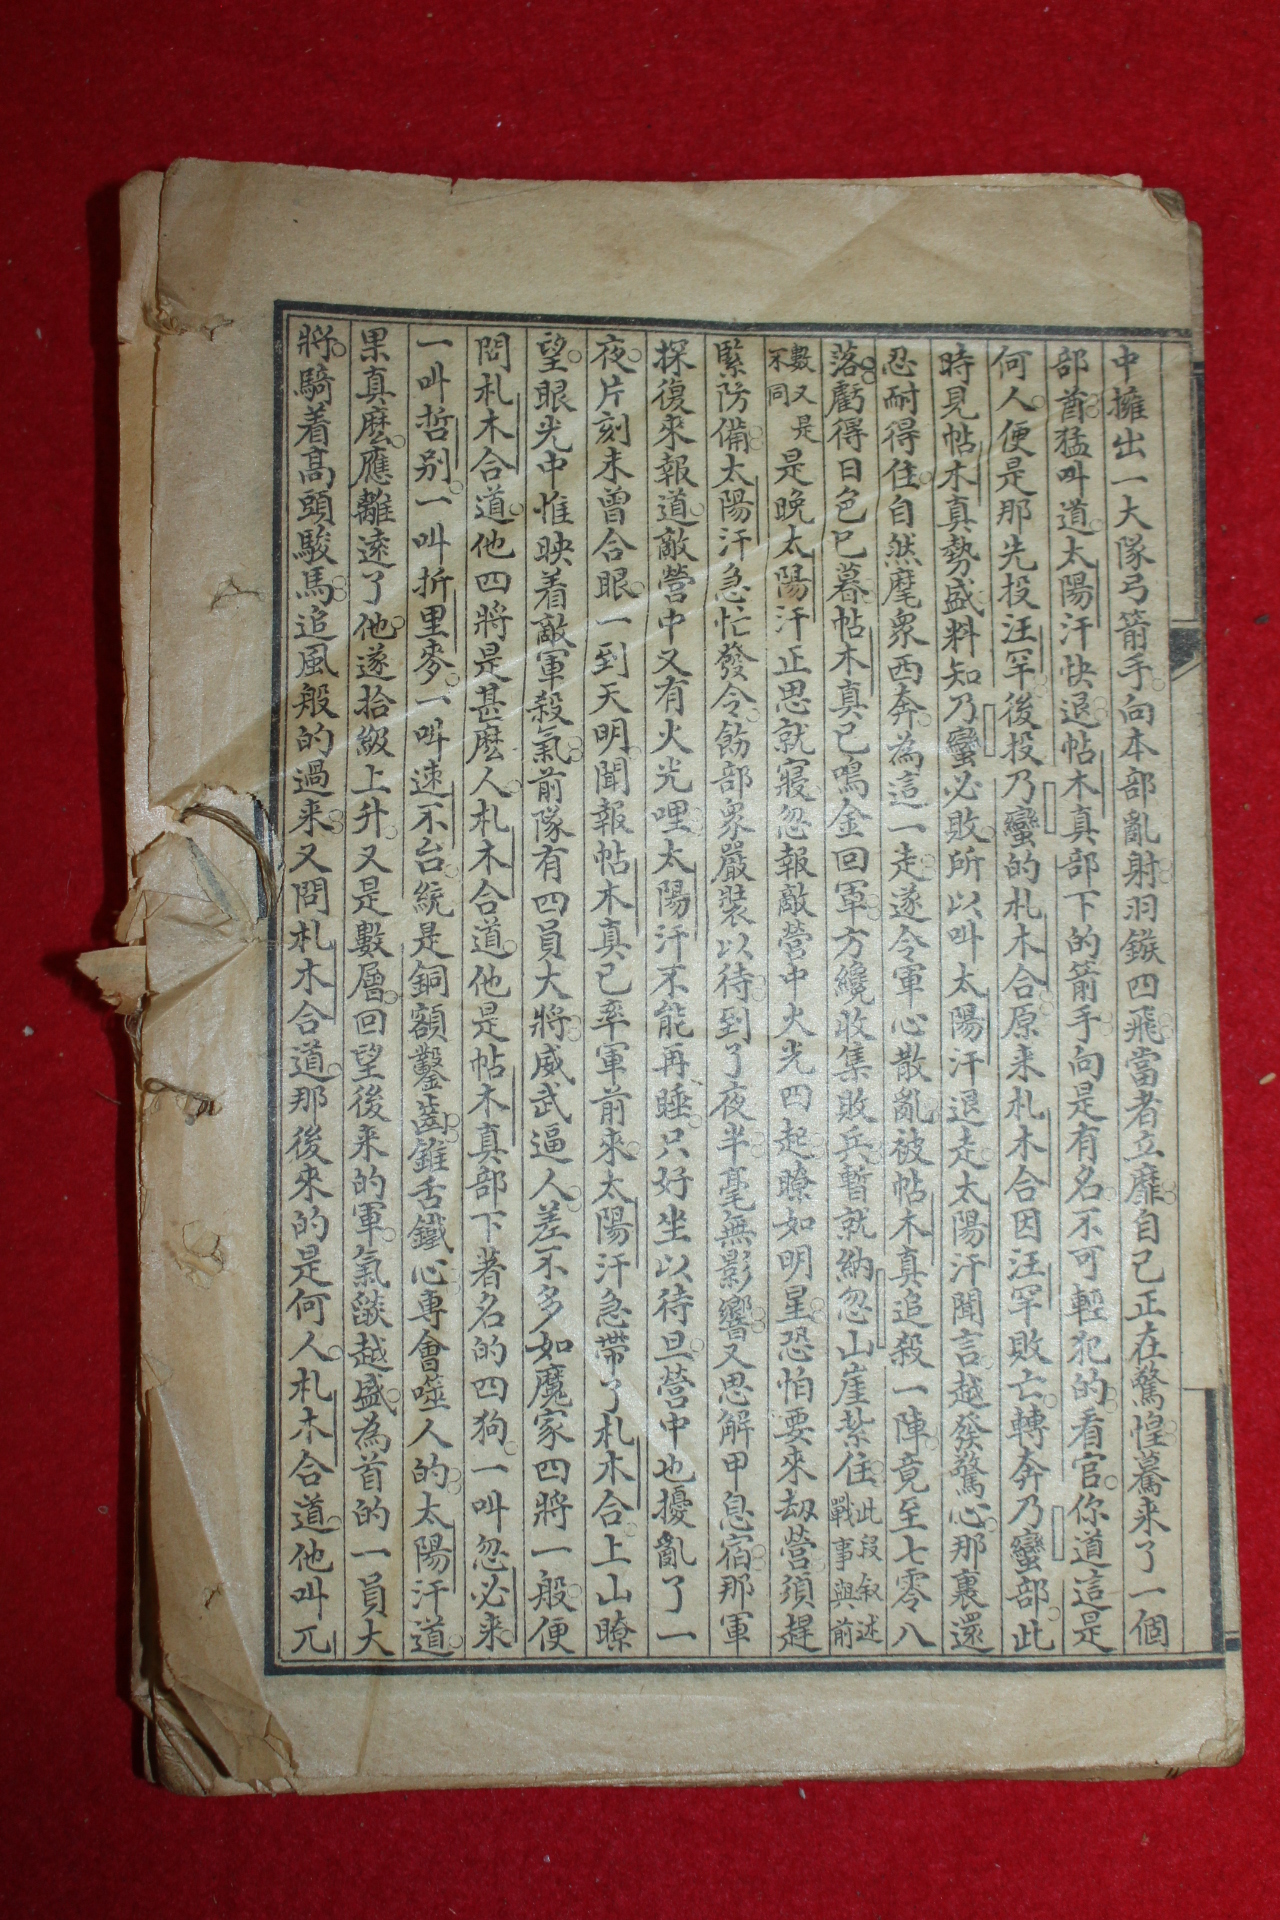 中擁出一大隊弓箭手。向本部亂射。羽鏃四飛。當者立靡。自己正在驚惶。驀來了一個
部酋。猛叫道。太陽汗快退。帖木真部下的箭手。向是有名。不可輕犯的。看官。你道這是
何人。便是那先投汪罕。後投乃蠻的札木合。原来札木合因汪罕敗亡。轉奔乃蠻部。此
時見帖木真勢盛。料知乃蠻必敗。所以叫太陽汗退走。太陽汗聞言。越發驚心。那裏還
忍耐得住。自然麾眾西奔。為這一走。遂令軍心散亂。被帖木真追殺一陣。竟至七零八
落。虧得日色已暮。帖木真已鳴金回軍。方纔收集敗兵。暫就納忽山崖紮住。此段叙述戰事與前
數又是不同是晚太陽汗正思就寢。忽報敵營中火光四起。瞭如明星。恐怕要來劫營。須趕
緊防備。太陽汗急忙發令。飭部眾嚴裝以待。到了夜半。毫無影響。又思解甲息宿。那軍
探復來報道。敵營中又有火光哩。太陽汗不能再睡。只好坐以待旦。營中也擾亂了一
夜。片刻未曾合眼。一到天明。聞報帖木真已率軍前來。太陽汗急帶了札木合。上山瞭
望。眼光中惟映着敵軍殺氣。前隊有四員大將。威武逼人。差不多如魔家四將一般。便
問札木合道。他四將是甚麽人。札木合道。他是帖木真部下著名的四狗。一叫忽必來。
一叫哲别。一叫折里麥。一叫速不台。統是銅額鑿齒。錐舌鐵心。專會噬人的。太陽汗道。
果真麽。應離遠了他。遂拾級上升。又是數層。回望後來的軍。氣燄越盛。為首的一員大
將。騎着高頭駿馬。追風般的過来。又問札木合道。那後來的是何人。札木合道。他叫兀